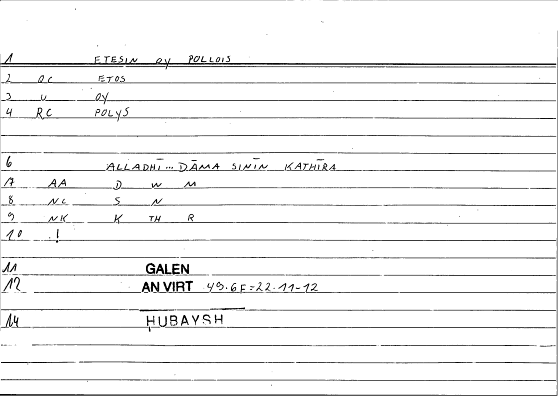 1 ETESIN OY POLLOIS
2 OC ETOS
3 U OY
4 RC POLYS
6 ALLADHĪ... DĀMA SINĪN KATHĪRA
7 AA D W M
8 NC S N
9 NK K TH R
10 !
11 GALEN
12 AN VIRT 49.6F=22.11-12
14 HUBAYSH